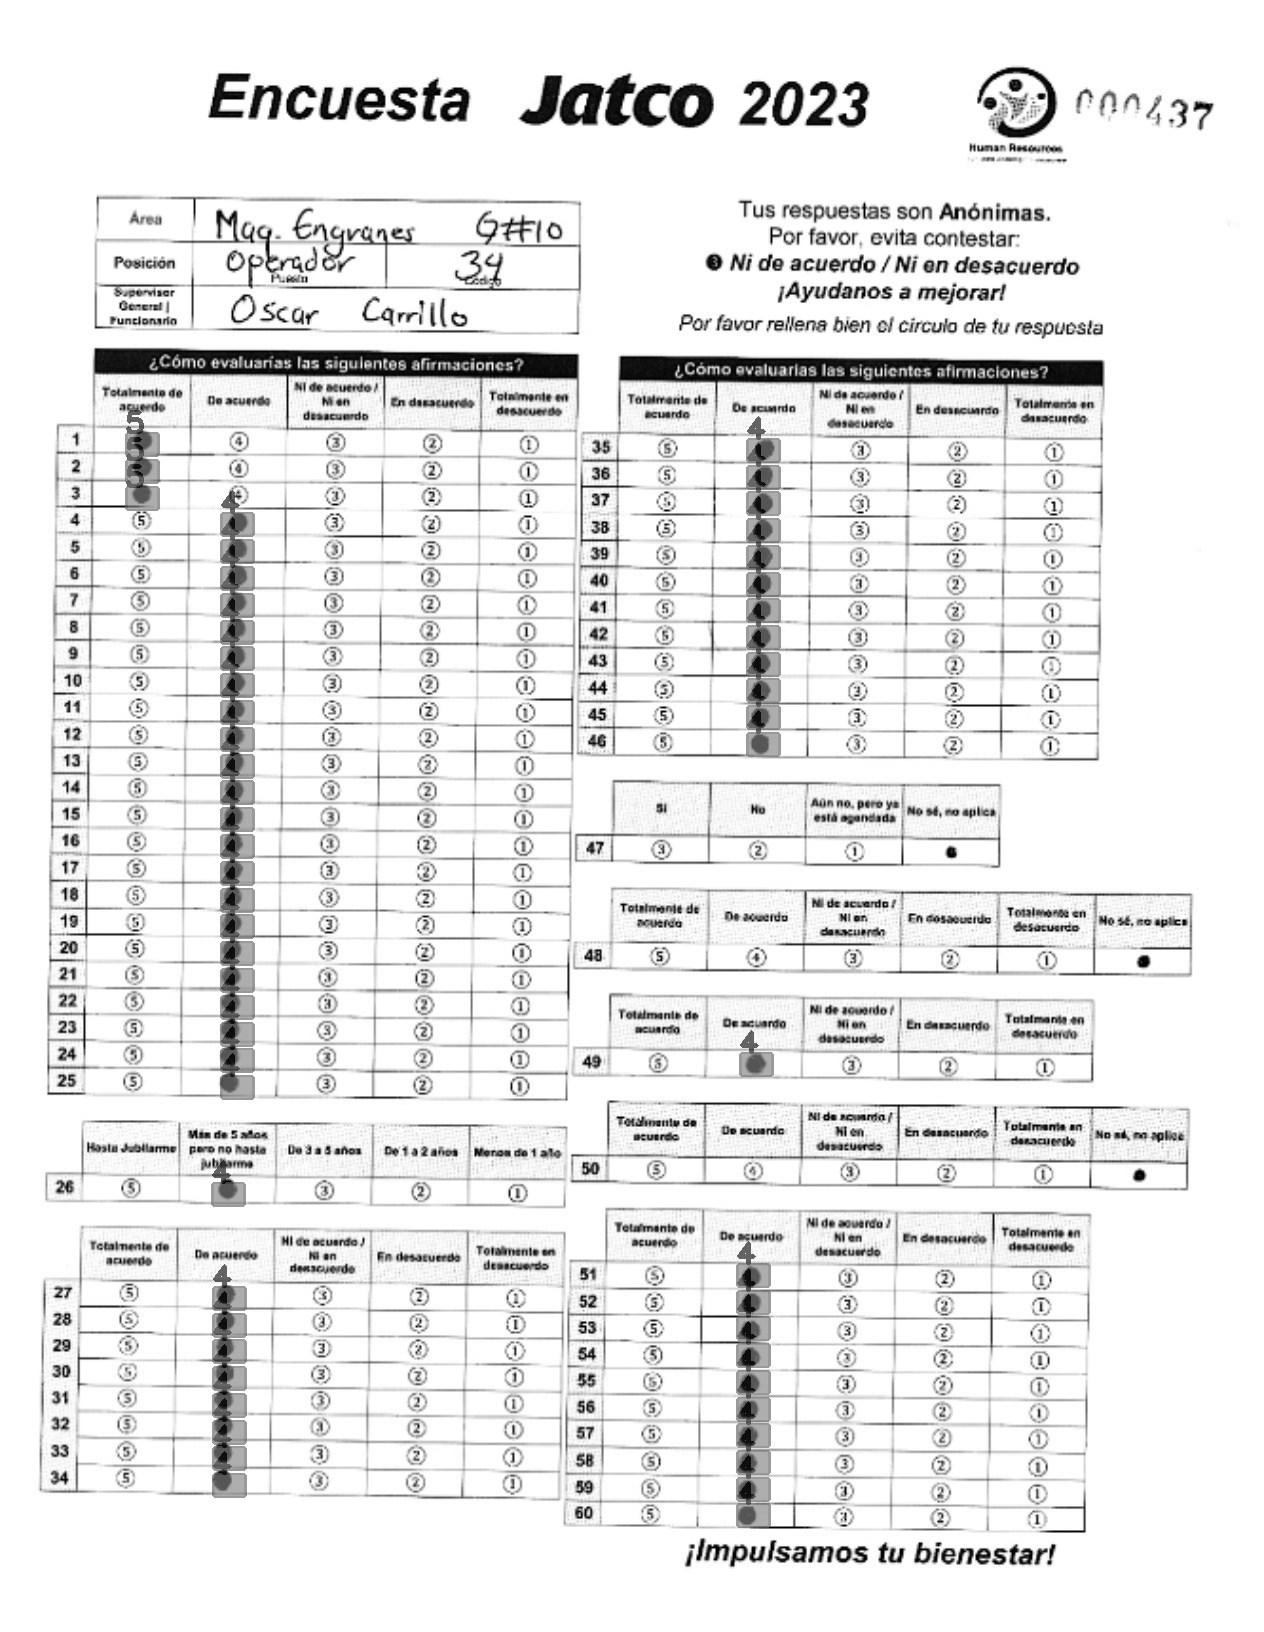 Encuesta Jatco 2023
Human Resources
000437
Área Maq. Engranes G#10
Posición Operador 34
Puesto Código
Supervisor General | Funcionario Oscar Carrillo
Tus respuestas son Anónimas.
Por favor, evita contestar:
❸ Ni de acuerdo / Ni en desacuerdo
¡Ayudanos a mejorar!
Por favor rellena bien el circulo de tu respuesta
¿Cómo evaluarías las siguientes afirmaciones?
Totalmente de acuerdo De acuerdo Ni de acuerdo / Ni en desacuerdo En desacuerdo Totalmente en desacuerdo
5
1 5 ④ ③ ② ①
2 5 ④ ③ ② ①
3 ④ ③ ② ①
4
4 ⑤ 4 ③ ② ①
5 ⑤ 4 ③ ② ①
6 ⑤ 4 ③ ② ①
7 ⑤ 4 ③ ② ①
8 ⑤ 4 ③ ② ①
9 ⑤ 4 ③ ② ①
10 ⑤ 4 ③ ② ①
11 ⑤ 4 ③ ② ①
12 ⑤ 4 ③ ② ①
13 ⑤ 4 ③ ② ①
14 ⑤ 4 ③ ② ①
15 ⑤ 4 ③ ② ①
16 ⑤ 4 ③ ② ①
17 ⑤ 4 ③ ② ①
18 ⑤ 4 ③ ② ①
19 ⑤ 4 ③ ② ①
20 ⑤ 4 ③ ② ①
21 ⑤ 4 ③ ② ①
22 ⑤ 4 ③ ② ①
23 ⑤ 4 ③ ② ①
24 ⑤ 4 ③ ② ①
25 ⑤ ③ ② ①
Hasta Jubilarme Más de 5 años pero no hasta jubilarme De 3 a 5 años De 1 a 2 años Menos de 1 año
4
26 ⑤ ③ ② ①
Totalmente de acuerdo De acuerdo Ni de acuerdo / Ni en desacuerdo En desacuerdo Totalmente en desacuerdo
4
27 ⑤ 4 ③ ② ①
28 ⑤ 4 ③ ② ①
29 ⑤ 4 ③ ② ①
30 ⑤ 4 ③ ② ①
31 ⑤ 4 ③ ② ①
32 ⑤ 4 ③ ② ①
33 ⑤ 4 ③ ② ①
34 ⑤ ③ ② ①
¿Cómo evaluarías las siguientes afirmaciones?
Totalmente de acuerdo De acuerdo Ni de acuerdo / Ni en desacuerdo En desacuerdo Totalmente en desacuerdo
4
35 ⑤ 4 ③ ② ①
36 ⑤ 4 ③ ② ①
37 ⑤ 4 ③ ② ①
38 ⑤ 4 ③ ② ①
39 ⑤ 4 ③ ② ①
40 ⑤ 4 ③ ② ①
41 ⑤ 4 ③ ② ①
42 ⑤ 4 ③ ② ①
43 ⑤ 4 ③ ② ①
44 ⑤ 4 ③ ② ①
45 ⑤ 4 ③ ② ①
46 ⑤ ③ ② ①
Si No Aún no, pero ya está agendada No sé, no aplica
47 ③ ② ①
Totalmente de acuerdo De acuerdo Ni de acuerdo / Ni en desacuerdo En desacuerdo Totalmente en desacuerdo No sé, no aplica
48 ⑤ ④ ③ ② ①
Totalmente de acuerdo De acuerdo Ni de acuerdo / Ni en desacuerdo En desacuerdo Totalmente en desacuerdo
4
49 ⑤ ③ ② ①
Totalmente de acuerdo De acuerdo Ni de acuerdo / Ni en desacuerdo En desacuerdo Totalmente en desacuerdo No sé, no aplica
50 ⑤ ④ ③ ② ①
Totalmente de acuerdo De acuerdo Ni de acuerdo / Ni en desacuerdo En desacuerdo Totalmente en desacuerdo
4
51 ⑤ 4 ③ ② ①
52 ⑤ 4 ③ ② ①
53 ⑤ 4 ③ ② ①
54 ⑤ 4 ③ ② ①
55 ⑤ 4 ③ ② ①
56 ⑤ 4 ③ ② ①
57 ⑤ 4 ③ ② ①
58 ⑤ 4 ③ ② ①
59 ⑤ 4 ③ ② ①
60 ⑤ ③ ② ①
¡Impulsamos tu bienestar!